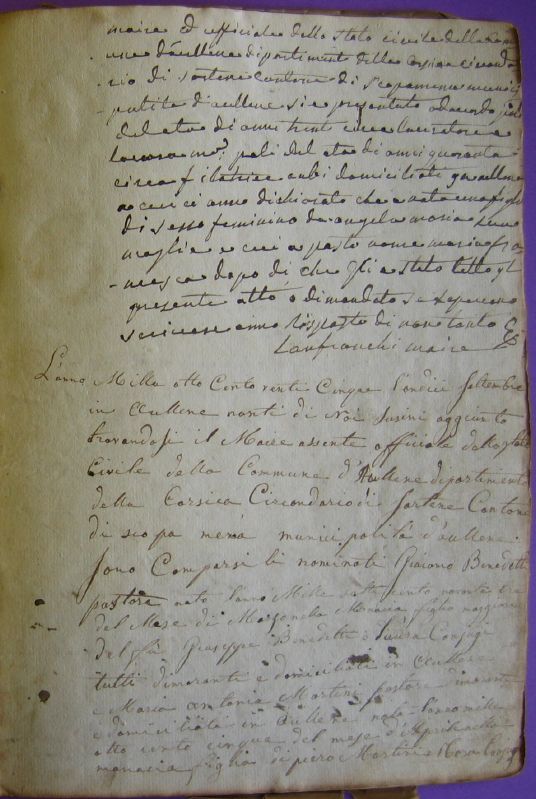 maire ed uffiziale dello stato civile della comu
une d'aullene dipartimento della Corsica circonda
rio di Sartene cantone di Scopamene municip
palita d'aullene si e presentato
del eta di anni trent circa lavoratore e
poli del eta di anni quaranta
circa filatrice anbi domiciliati in aullene
e ceci anno dichiarato che a nata una figlia
di sesso feminino da angela maria sua
moglie e ceci a posto nome maria fra
nicesca dopo di che gli a stato letto il
presente atto, e dimandato se sapevono
scrivere anno risposto di non tanto
Lanfranchi maire
L'anno Mille otto Cento venti Cinque l'ondici Settembre
in Aullene nanti di Noi Susini aggiunto
trovandosi il Maire assente officiale dello stato
Civile della Commune d'Aullene dipartimento
della Corsica Circondario di Sartene Cantone
di scopamena municipalita d'aullene
Sono Comparsi li nominati Giacomo Benedetti
pastore nato l'anno Mille sette cento novanta tre
del Mese di Marzo nella Monacia figlio maggiore
del fu Giuseppe Benedetti e Laura Conjugi
tutti dimoranti e domiciliati in Aullene
e Maria Antonia Martini pastora dimorante
e domiciliata in Aullene nata l'anno mille
otto cento cinque del mese di Aprile alla
monacia figlia di piero Martini e Rosa Conjugi